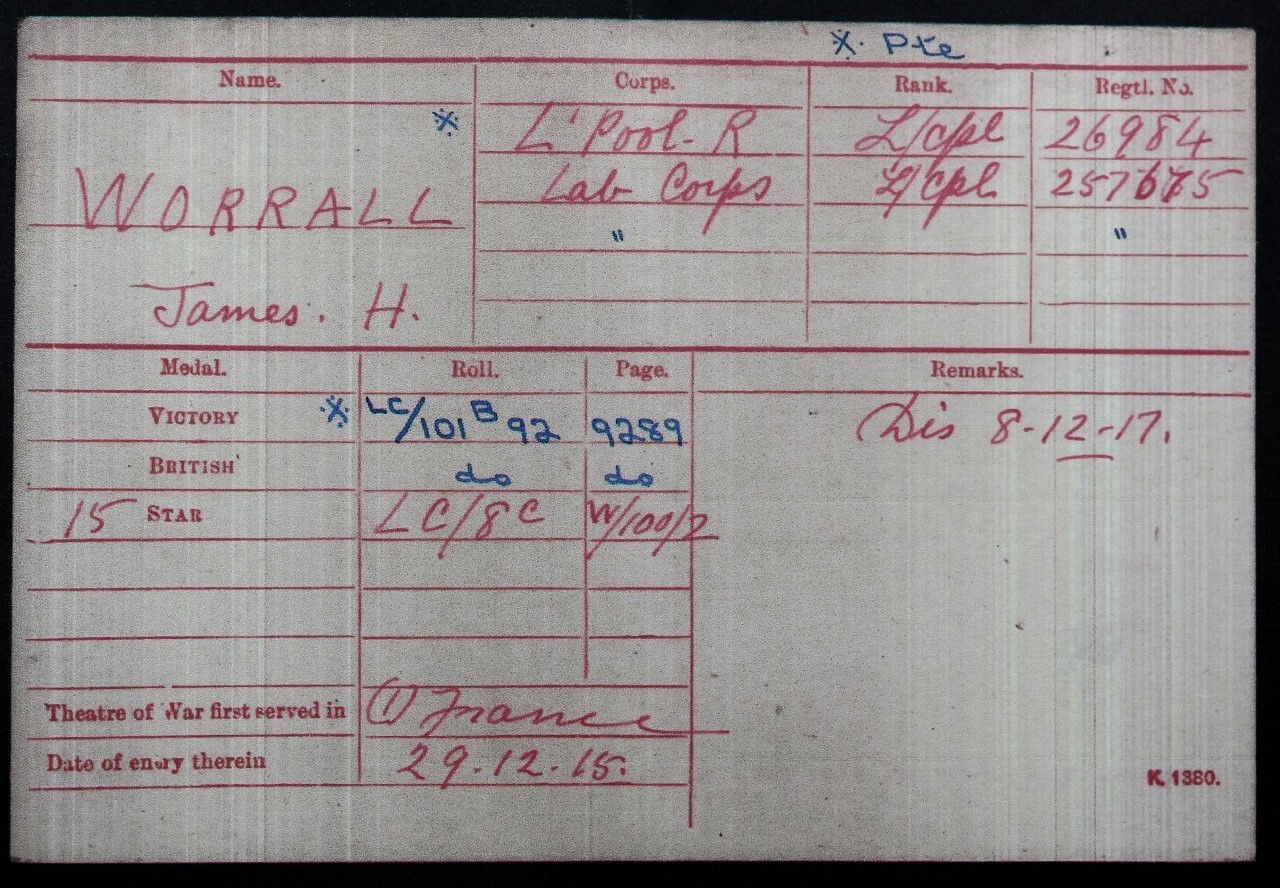 ※. Pte
Name. Corps. Rank. Regtl. No.
※ L'Pool-R L/cpl 26984
WORRALL Lab Corps L/cpl
" "
James. H.
Medal. Roll. Page. Remarks.
VICTORY ※ LC/101 B 92 9289 Dis 8-12-17.
BRITISH do do
15 STAR LC/8C W/100/2
Theatre of War first served in (1) France
Date of entry therein 29.12.15.
K. 1380.